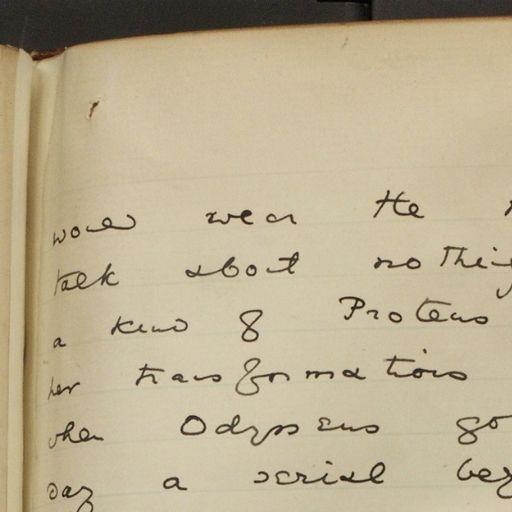 would wear the
talk about nothing
a kind of Proteus
her transformations
when Odysseus go
day a serial beg